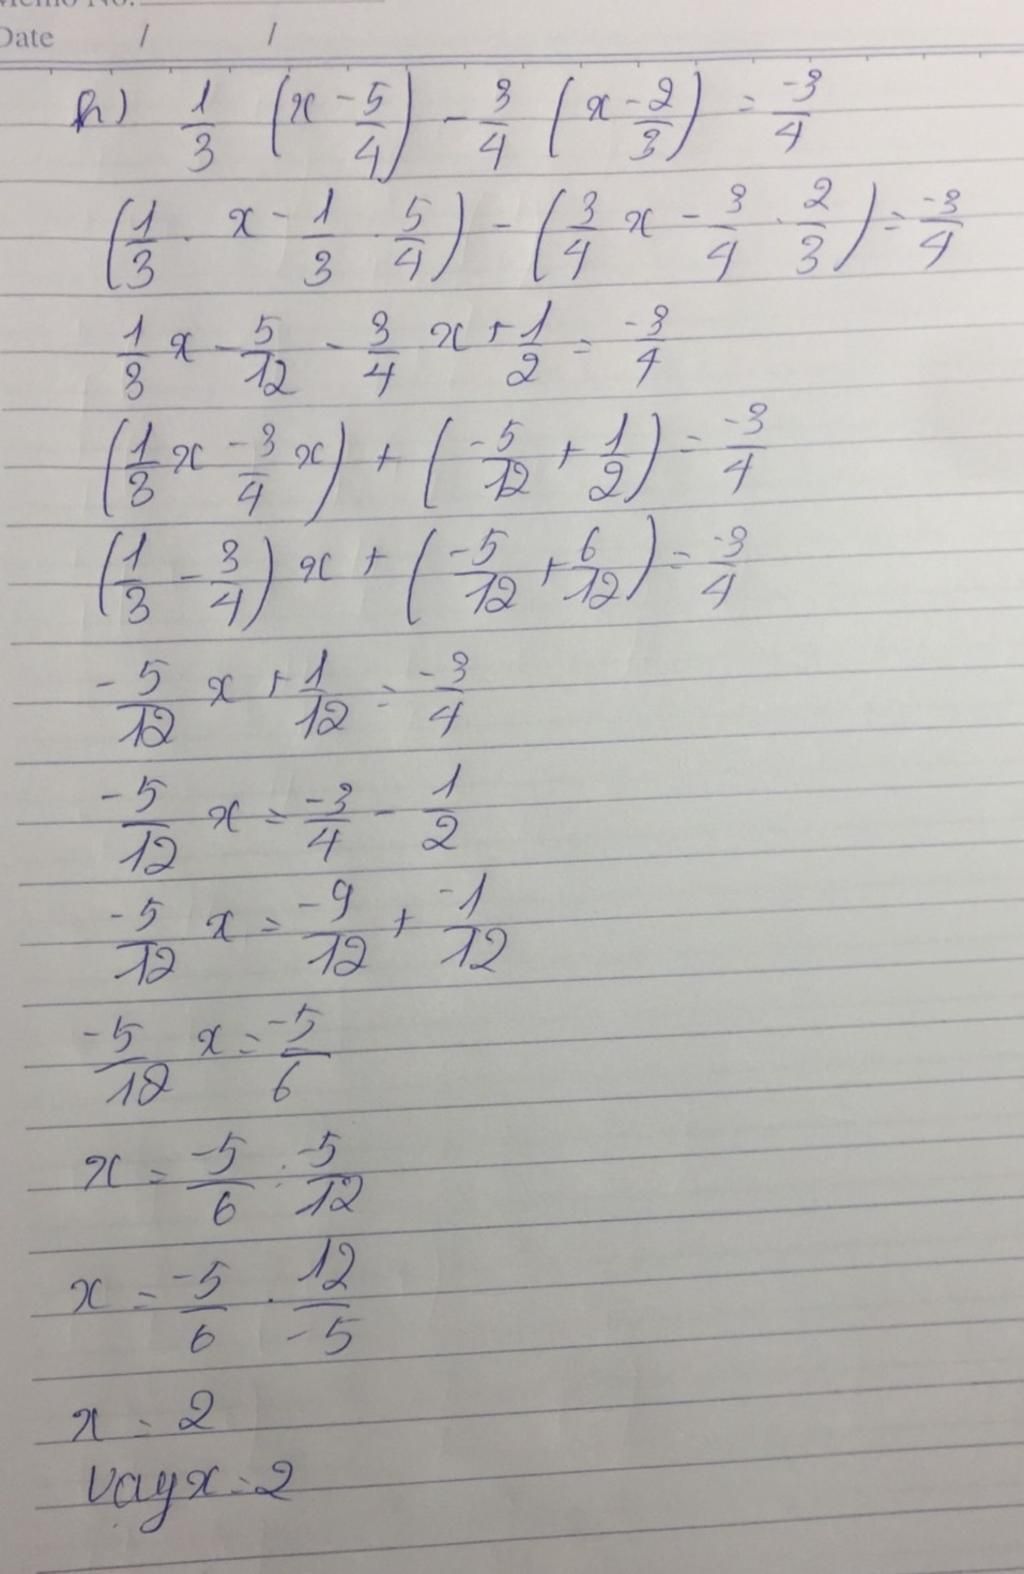 Memo No.
Date / /
h) 1/3 (x - 5/4) - 3/4 (x - 2/3) = -3/4
(1/3 . x - 1/3 . 5/4) - (3/4 x - 3/4 . 2/3) = -3/4
1/3 x - 5/12 - 3/4 x + 1/2 = -3/4
(1/3 x - 3/4 x) + (-5/12 + 1/2) = -3/4
(1/3 - 3/4) x + (-5/12 + 6/12) = -3/4
-5/12 x + 1/12 = -3/4
-5/12 x = -3/4 - 1/2
-5/12 x = -9/12 + -1/12
-5/12 x = -5/6
x = -5/6 : -5/12
x = -5/6 . 12/-5
x = 2
vay x = 2